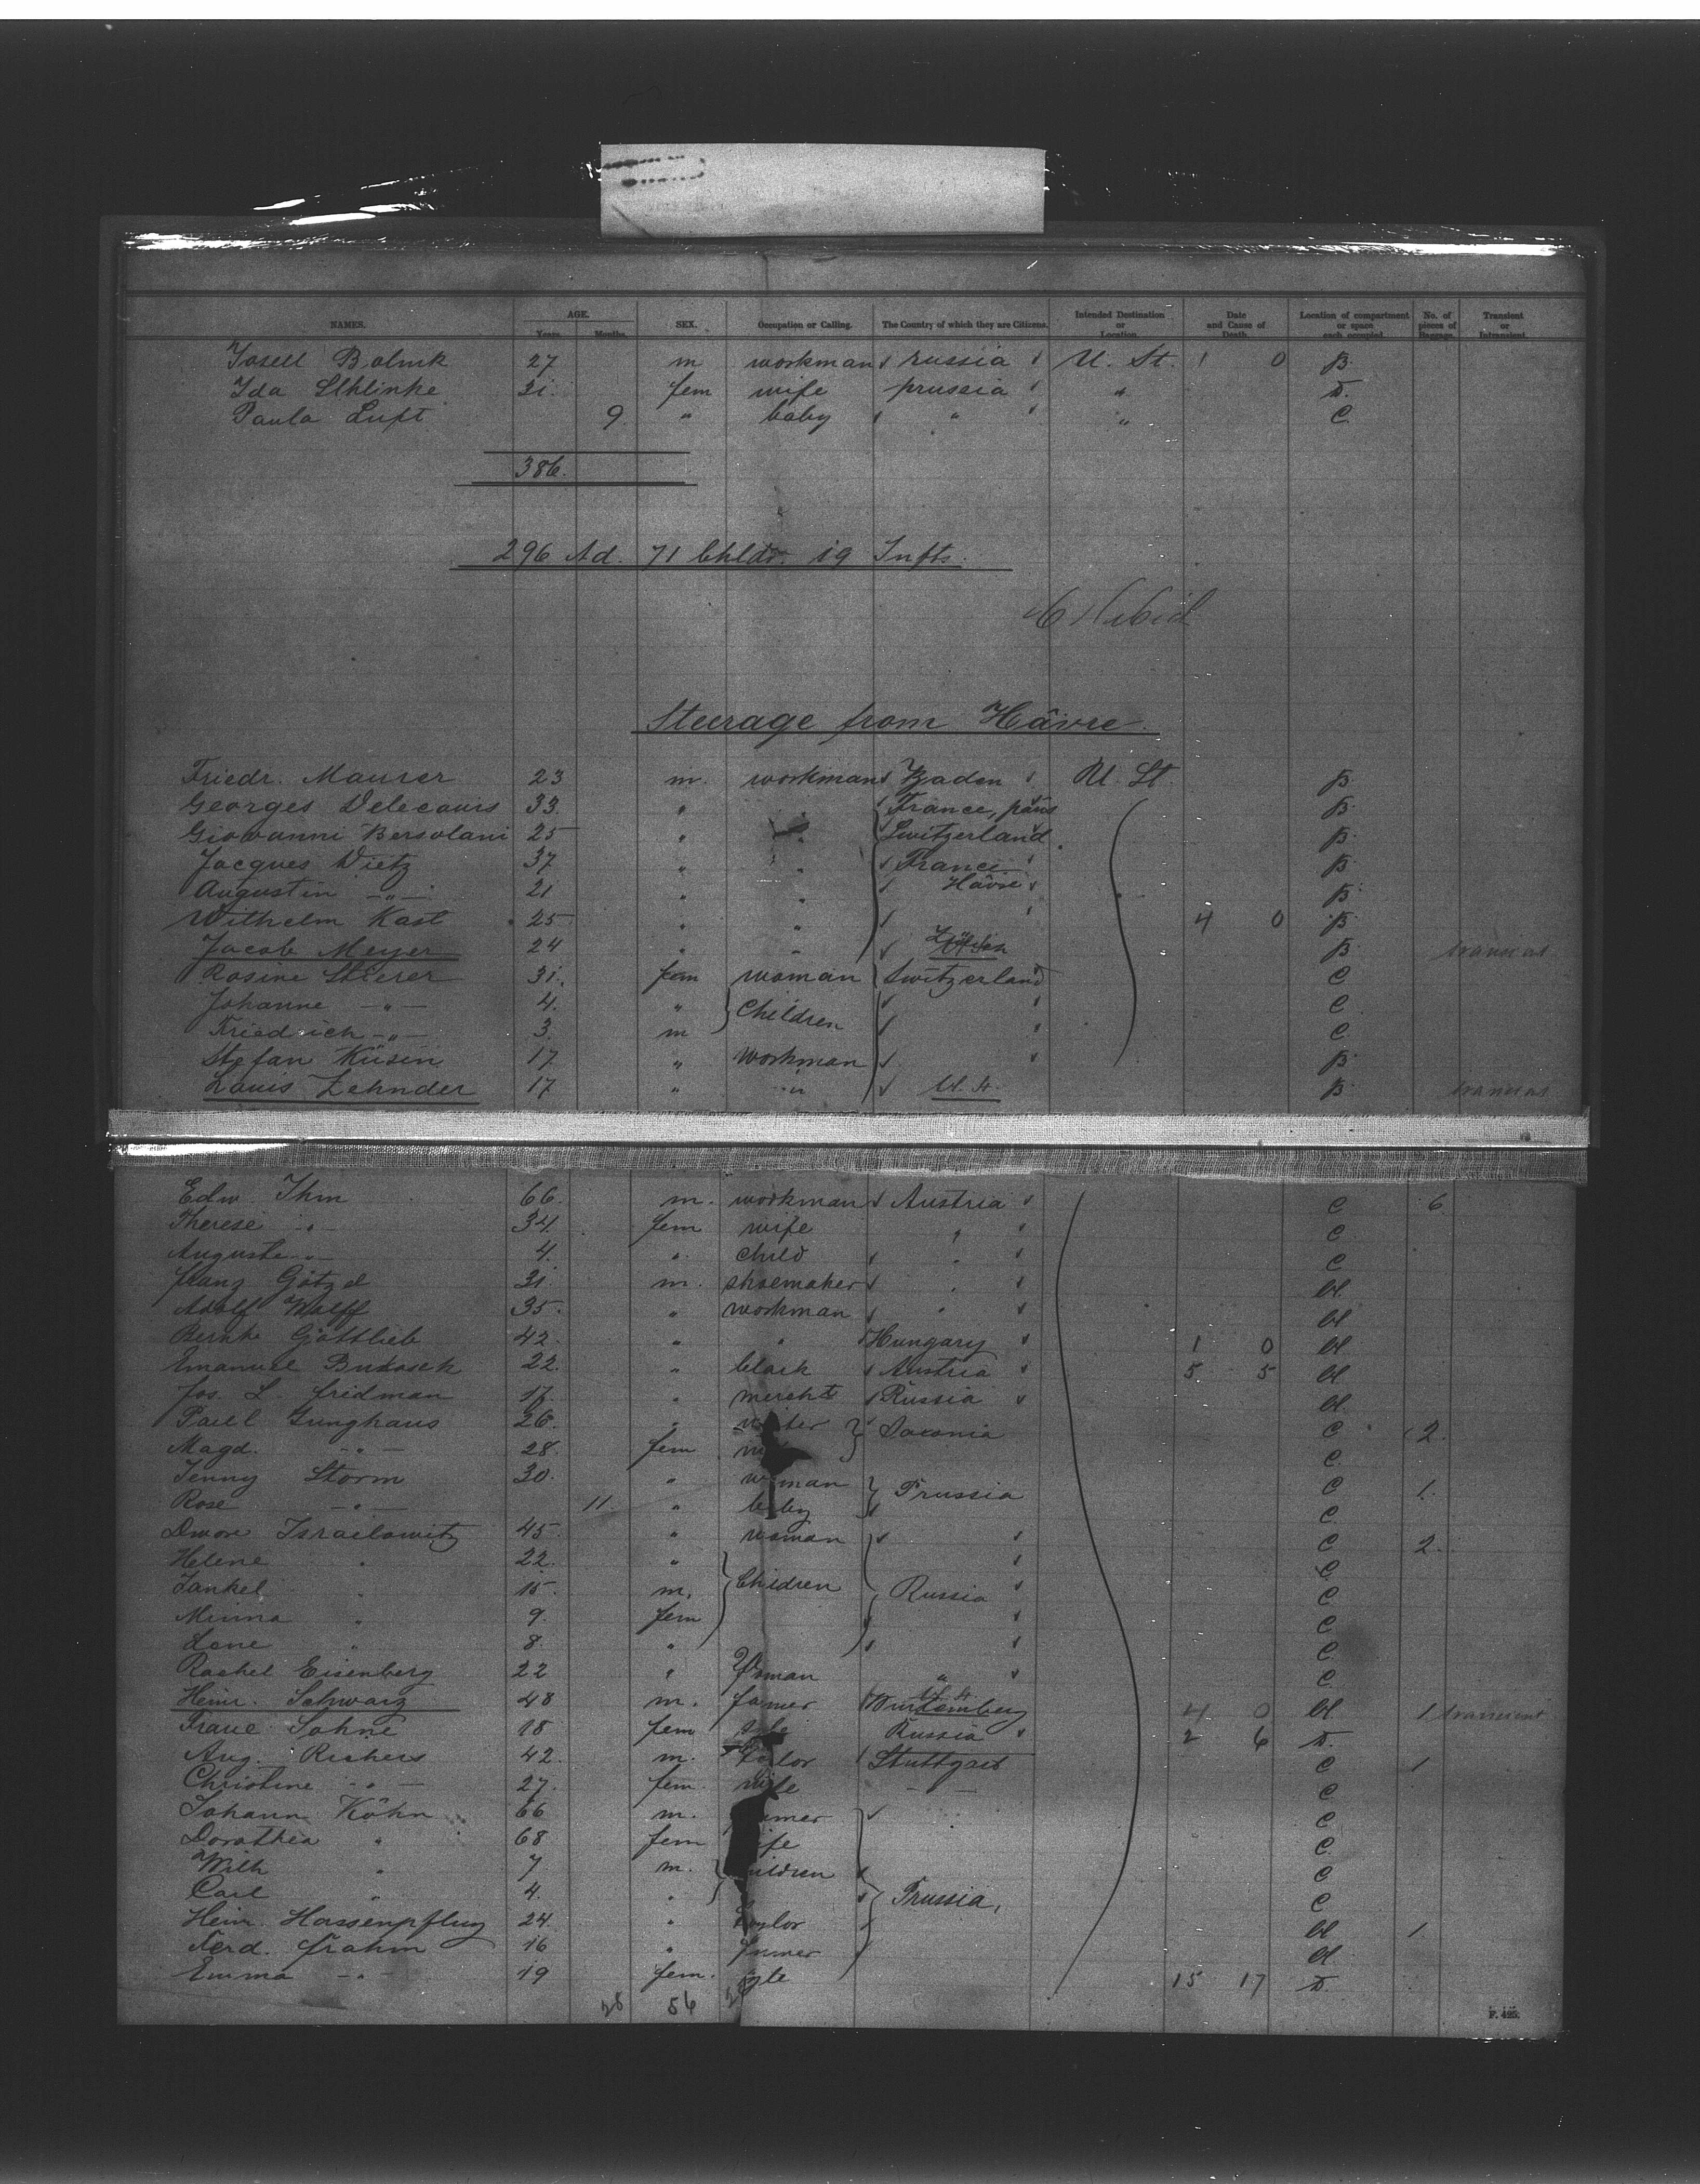 NAMES. AGE. Years. Months. SEX. Occupation or Calling. The Country of which they are Citizens. Intended Destination or Location. Date and Cause of Death. Location of compartment or space each occupied. No. of pieces of Baggage. Transient or Intransient.
27 m workman russia U. St. 1 0 B.
Ida 31. fem wife prussia " D.
Paula Luft 9. " baby " " C
386.
296 Ad. 71 Chldr. 19 Infts.
Steerage from Hâvre
Friedr. Maurer 23 m. workman Baden U. St. B.
Georges Delecouis 33. " " France, paris B.
Giovanni Bersolani 25 " " Switzerland B.
Jacques Dietz 37 " " France B.
Augustin " 21 " " Hâvre B.
Wilhelm Kast 25 " " 4 0 B.
Jacob Meyer 24 " " B. transient
Rosine 31. fem woman Switzerland C
Johanne " 4. " Children C
Friedrich " 3. m C
Stefan Küsin 17 " workman B.
Louis Zehnder 17 " " U. St. B. transient
Edw. Ihm 66. m. workman Austria C 6
Therese " 34. fem wife " C
Auguste " 4. " child " C
Franz Götzel 31. m. shoemaker " A.
Adolf Wolff 35. " workman " A
Gottlieb 42. " " Hungary 1 0 A
Emanuel 22. " clark Austria 5 5 A
Jos. L. Fridman 17. " mercht Russia A.
Paul Junghaus 26. " Saxonia C 2.
Magd. " 28. fem C.
Jenny Storm 30. " woman Prussia C 1.
Rose " 11. " baby C
Dwore Israilowitz 45. " woman C 2.
Helene " 22. " Children C
Jankel " 15. m. Russia C
Minna " 9. fem C
Lene " 8. " C
Rachel Eisenberg 22 " Woman " C
Heinr. Schwarz 48 m. farmer U. St. Württemberg 4 0 A 1 transient
Sohne 18 fem Russia 2 6 D.
Aug. Richers 42. m. Stuttgart C 1
Christine " 27. fem. wife C
Johann Köhn 66 m. C
Dorothea " 68 fem C.
Wilh " 7 m. C
Carl " 4. " Prussia, C
Heinr. Hassenpflug 24. " A 1.
Ferd. Frahm 16 " A.
Emma " 19 fem. 15 17 D.
28 56
F. 425.